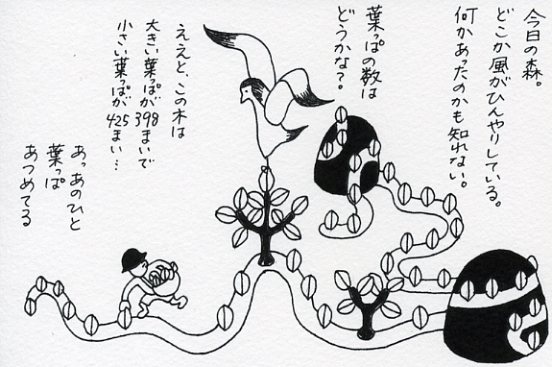 今日の森。
どこか風がひんやりしている。
何かあったのかも知れない。
葉っぱの数は
どうかな？。
ええと、この木は
大きい葉っぱが398まいで
小さい葉っぱが425まい…
あっあのひと
葉っぱ
あつめてる